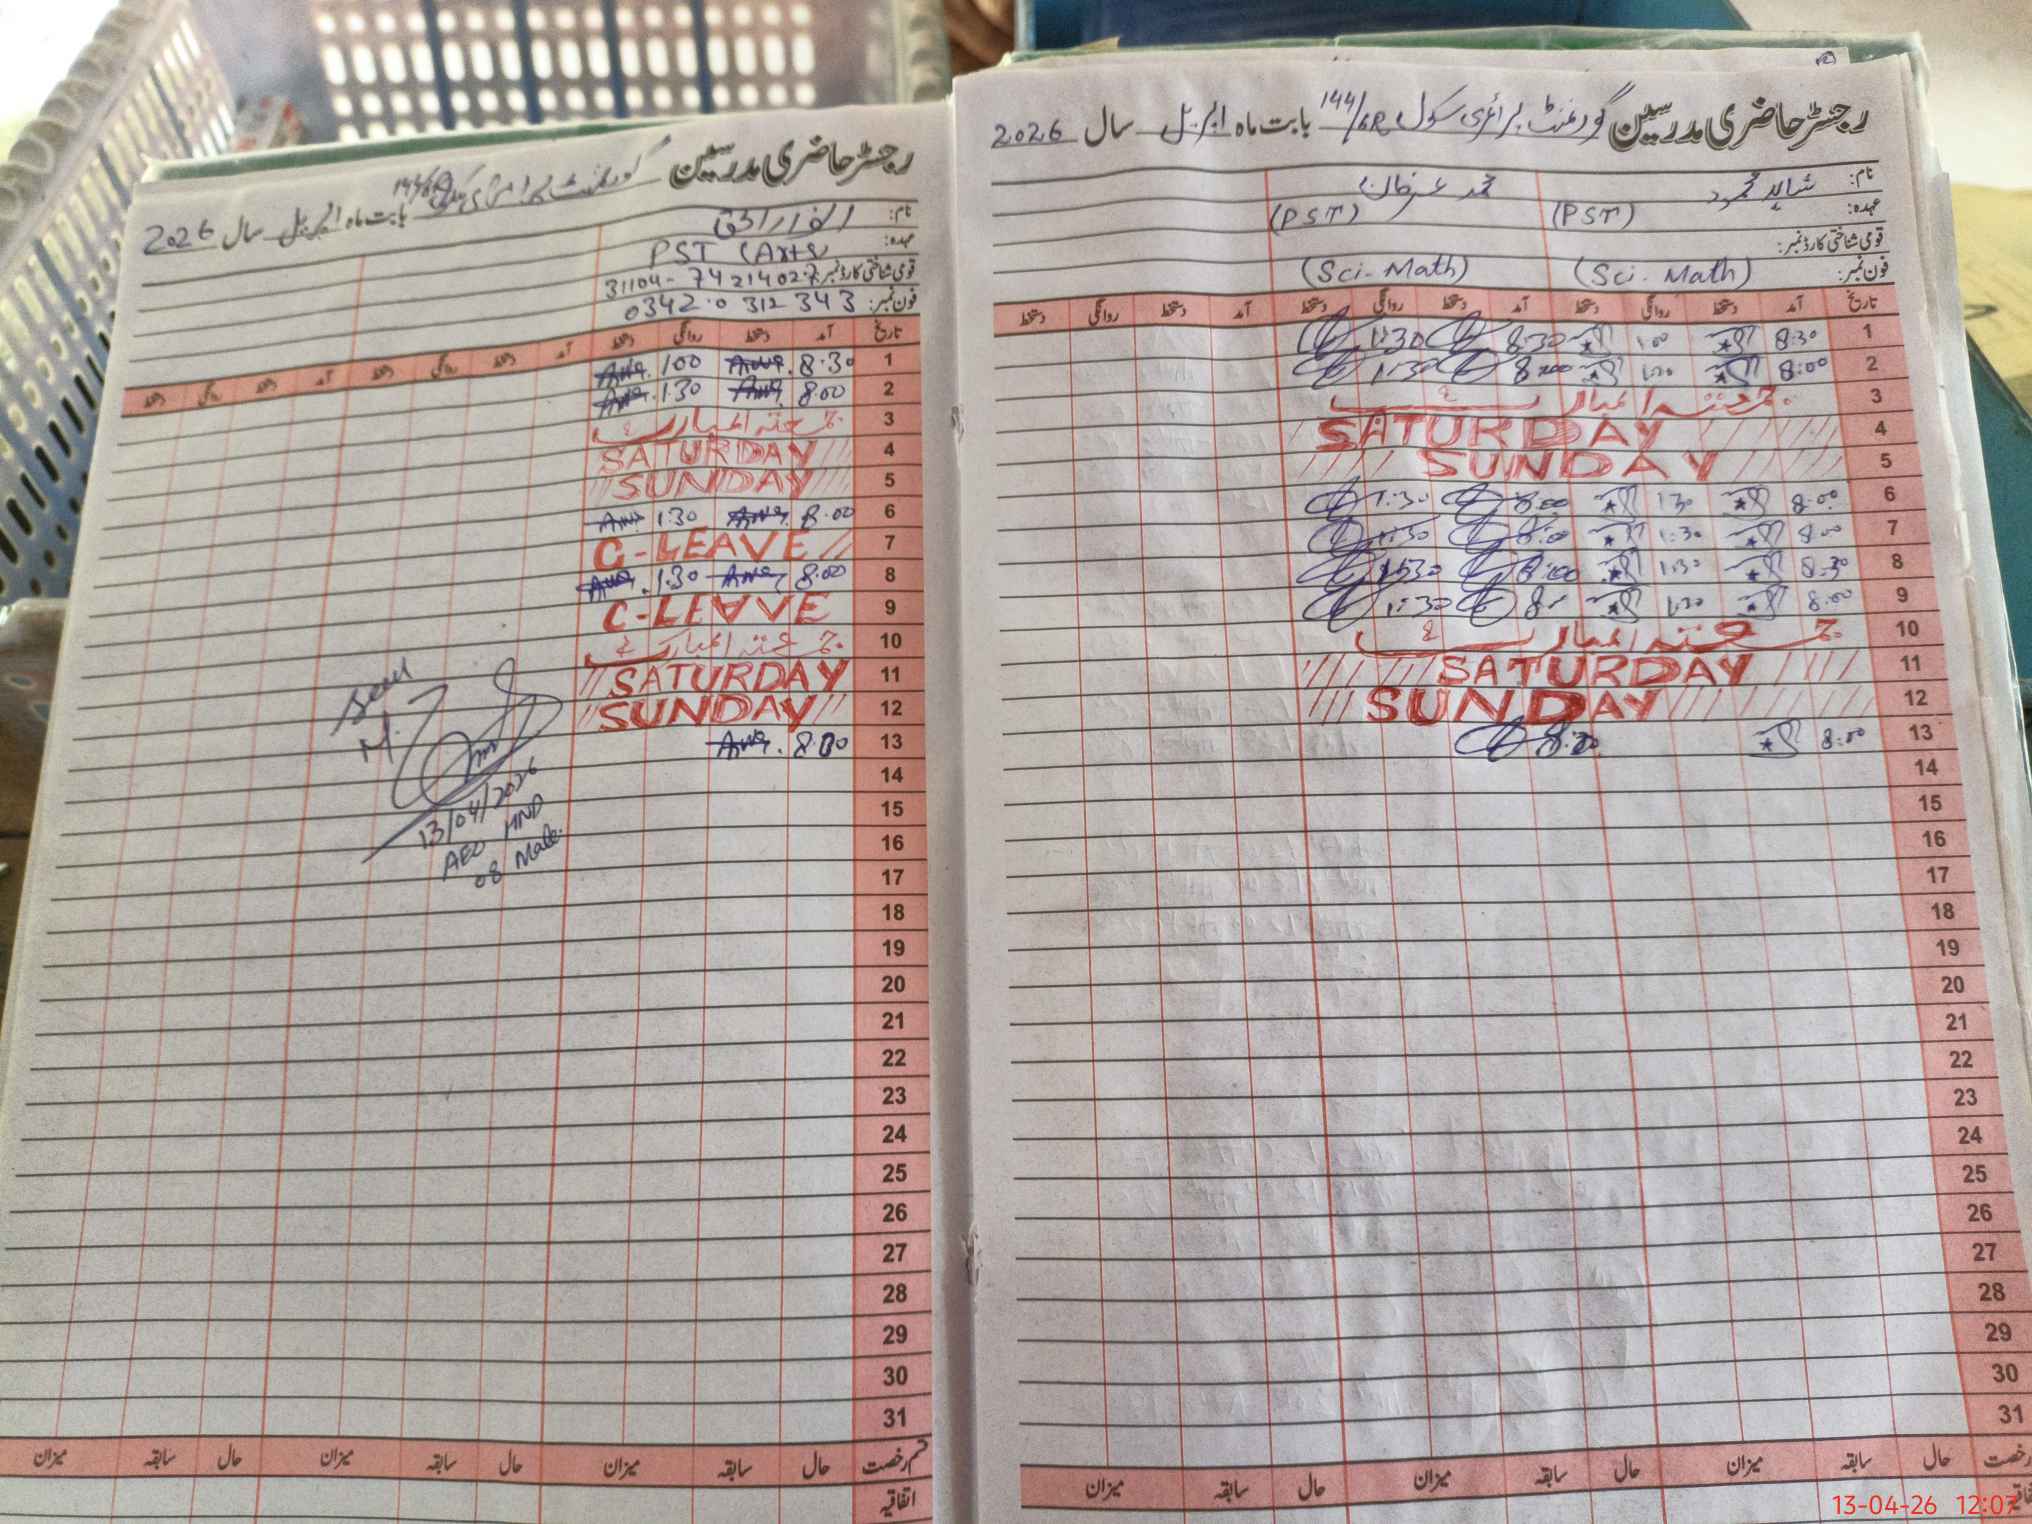 رجسٹر حاضری مدرسین گورنمنٹ پرائمری سکول 144/6R بابت ماہ اپریل سال 2026
نام: شاہد محمود محمد عرفان
عہدہ: (PST) (PST)
قومی شناختی کارڈ نمبر:
فون نمبر: (Sci. Math) (Sci. Math)
تاریخ آمد دستخط روانگی دستخط آمد دستخط روانگی دستخط آمد دستخط روانگی دستخط
1 8:30 1:00 8:30 1:30
2 8:00 1:30 8:00 1:30
3
4 SATURDAY
5 SUNDAY
6 8:00 1:30 8:00 1:30
7 8:00 1:30 8:00 1:30
8 8:30 1:30 8:00 1:30
9 8:00 1:30 8:- 1:30
10
11 SATURDAY
12 SUNDAY
13 8:00 8:00
14
15
16
17
18
19
20
21
22
23
24
25
26
27
28
29
30
31
رخصت حال سابقہ میزان حال سابقہ میزان حال سابقہ میزان
رجسٹر حاضری مدرسین گورنمنٹ پرائمری سکول 144/6R بابت ماہ اپریل سال 2026
نام:
عہدہ: PST (Arts)
قومی شناختی کارڈ نمبر: 31104-74214027
فون نمبر: 0342.0312343
تاریخ آمد دستخط روانگی دستخط آمد دستخط روانگی دستخط آمد دستخط روانگی دستخط
1 8:30 1:00
2 8:00 1:30
3
4 SATURDAY
5 SUNDAY
6 8:00 1:30
7 C-LEAVE
8 8:00 1:30
9 C-LEAVE
10
11 SATURDAY
12 SUNDAY
13 8:00
14
15
16
17
18
19
20
21
22
23
24
25
26
27
28
29
30
31
قسم رخصت حال سابقہ میزان حال سابقہ میزان حال سابقہ میزان
اتفاقیہ
Seen
13/04/2026
AEO HND
08 Male.
13-04-26 12:07